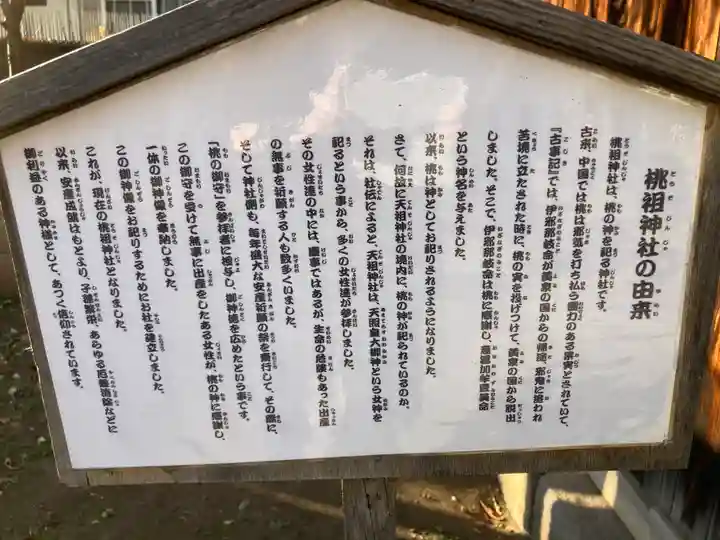 桃祖神社の由来
桃祖神社は、桃の神を記る神社です。
古来、中国では桃は邪気を打ち払う霊力のある果実とされていて、
『古事記』では、伊邪那岐命が黄泉の国からの帰途、邪鬼に追われ
苦境に立たされた時に、桃の実を投げつけて、黄泉の国から脱出
しました。そこで、伊邪那岐命は桃に感謝し、意富加牟豆美命
という神名を与えました。
以来、桃は神としてお記りされるようになりました。
さて、何故に天祖神社の境内に、桃の神が記られているのか。
それは、社伝によると、天祖神社は、天照皇大御神という女神を
記るという事から、多くの女性達が参拝しました。
その女性達の中には、慶事ではあるが、生命の危険もあった出産
の無事を祈願する人も数多くいました。
そして神社側も、毎年盛大な安産祈願の祭を斎行して、その際に、
「桃の御守」を参拝者に授与し、御神徳を広めたという事です。
この御守を受けて無事に出産をしたある女性が、桃の神に感謝し、
一体の御神像を奉納しました。
この御神像をお記りするためにお社を建立しました。
これが、現在の桃祖神社となりました。
以来、安産守護はもとより、子孫繁栄、あらゆる厄難消除などに
御利益のある神様として、あつく信仰されています。